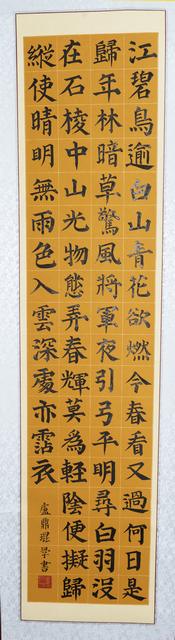 江碧鳥逾白山青花欲燃今春看又過何日是
歸年林暗草驚風將軍夜引弓平明尋白羽沒
在石棱中山光物態弄春輝莫為輕陰便擬歸
縱使晴明無雨色入雲深處亦霑衣
盧鼎琨學書